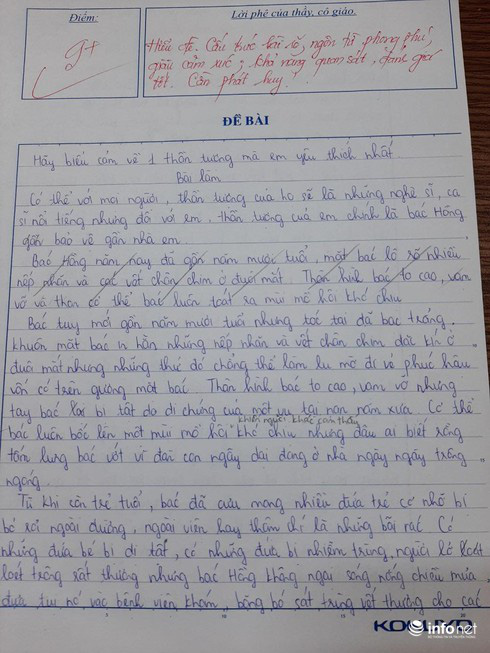 Điểm:
Lời phê của thầy, cô giáo.
9+
Hiểu đề. Cấu trúc bài rõ, ngôn từ phong phú,
giàu cảm xúc; khả năng quan sát, đánh giá
tốt. Cần phát huy!
ĐỀ BÀI
Hãy biểu cảm về 1 thần tượng mà em yêu thích nhất
Bài làm
Có thể với mọi người, thần tượng của họ sẽ là những nghệ sĩ, ca
sĩ nổi tiếng nhưng đối với em, thần tượng của em chính là bác Hồng
gần bảo vệ gần nhà em.
Bác Hồng năm nay đã gần năm mươi tuổi, mặt bác lộ rõ nhiều
nếp nhăn và các vết chân chim ở đuôi mắt. Thân hình bác to cao, vạm
vỡ và thân có thể bác luôn toát ra mùi mồ hôi khó chịu
Bác tuy mới gần năm mươi tuổi nhưng tóc tai đã bạc trắng,
khuôn mặt bác in hằn những nếp nhăn và vết chân chim dài kín ở
đuôi mắt nhưng những thứ đó chẳng thể làm lu mờ đi vẻ phúc hậu
vốn có trên gương mặt bác. Thân hình bác to cao, vạm vỡ nhưng
tay bác lại bị tật do di chứng của một vụ tai nạn năm xưa. Cơ thể
khiến người khác cảm thấy
bác luôn bốc lên một mùi mồ hôi khó chịu nhưng đâu ai biết rằng
tấm lưng bác vất vả vì đàn con ngây dại đang ở nhà ngày ngày trông
ngóng.
Từ khi còn trẻ tuổi, bác đã cưu mang nhiều đứa trẻ cơ nhỡ bị
bỏ rơi ngoài đường, ngoài viện hay thậm chí là những bãi rác. Có
những đứa bé bị dị tật, có những đứa bị nhiễm trùng, người lở loét
loét trông rất thương nhưng bác Hồng không ngại sóng, nóng chiều mưa
đưa tụi nó vào bệnh viện khám, băng bó sát trùng vết thương cho các
KOKUYO
infonet